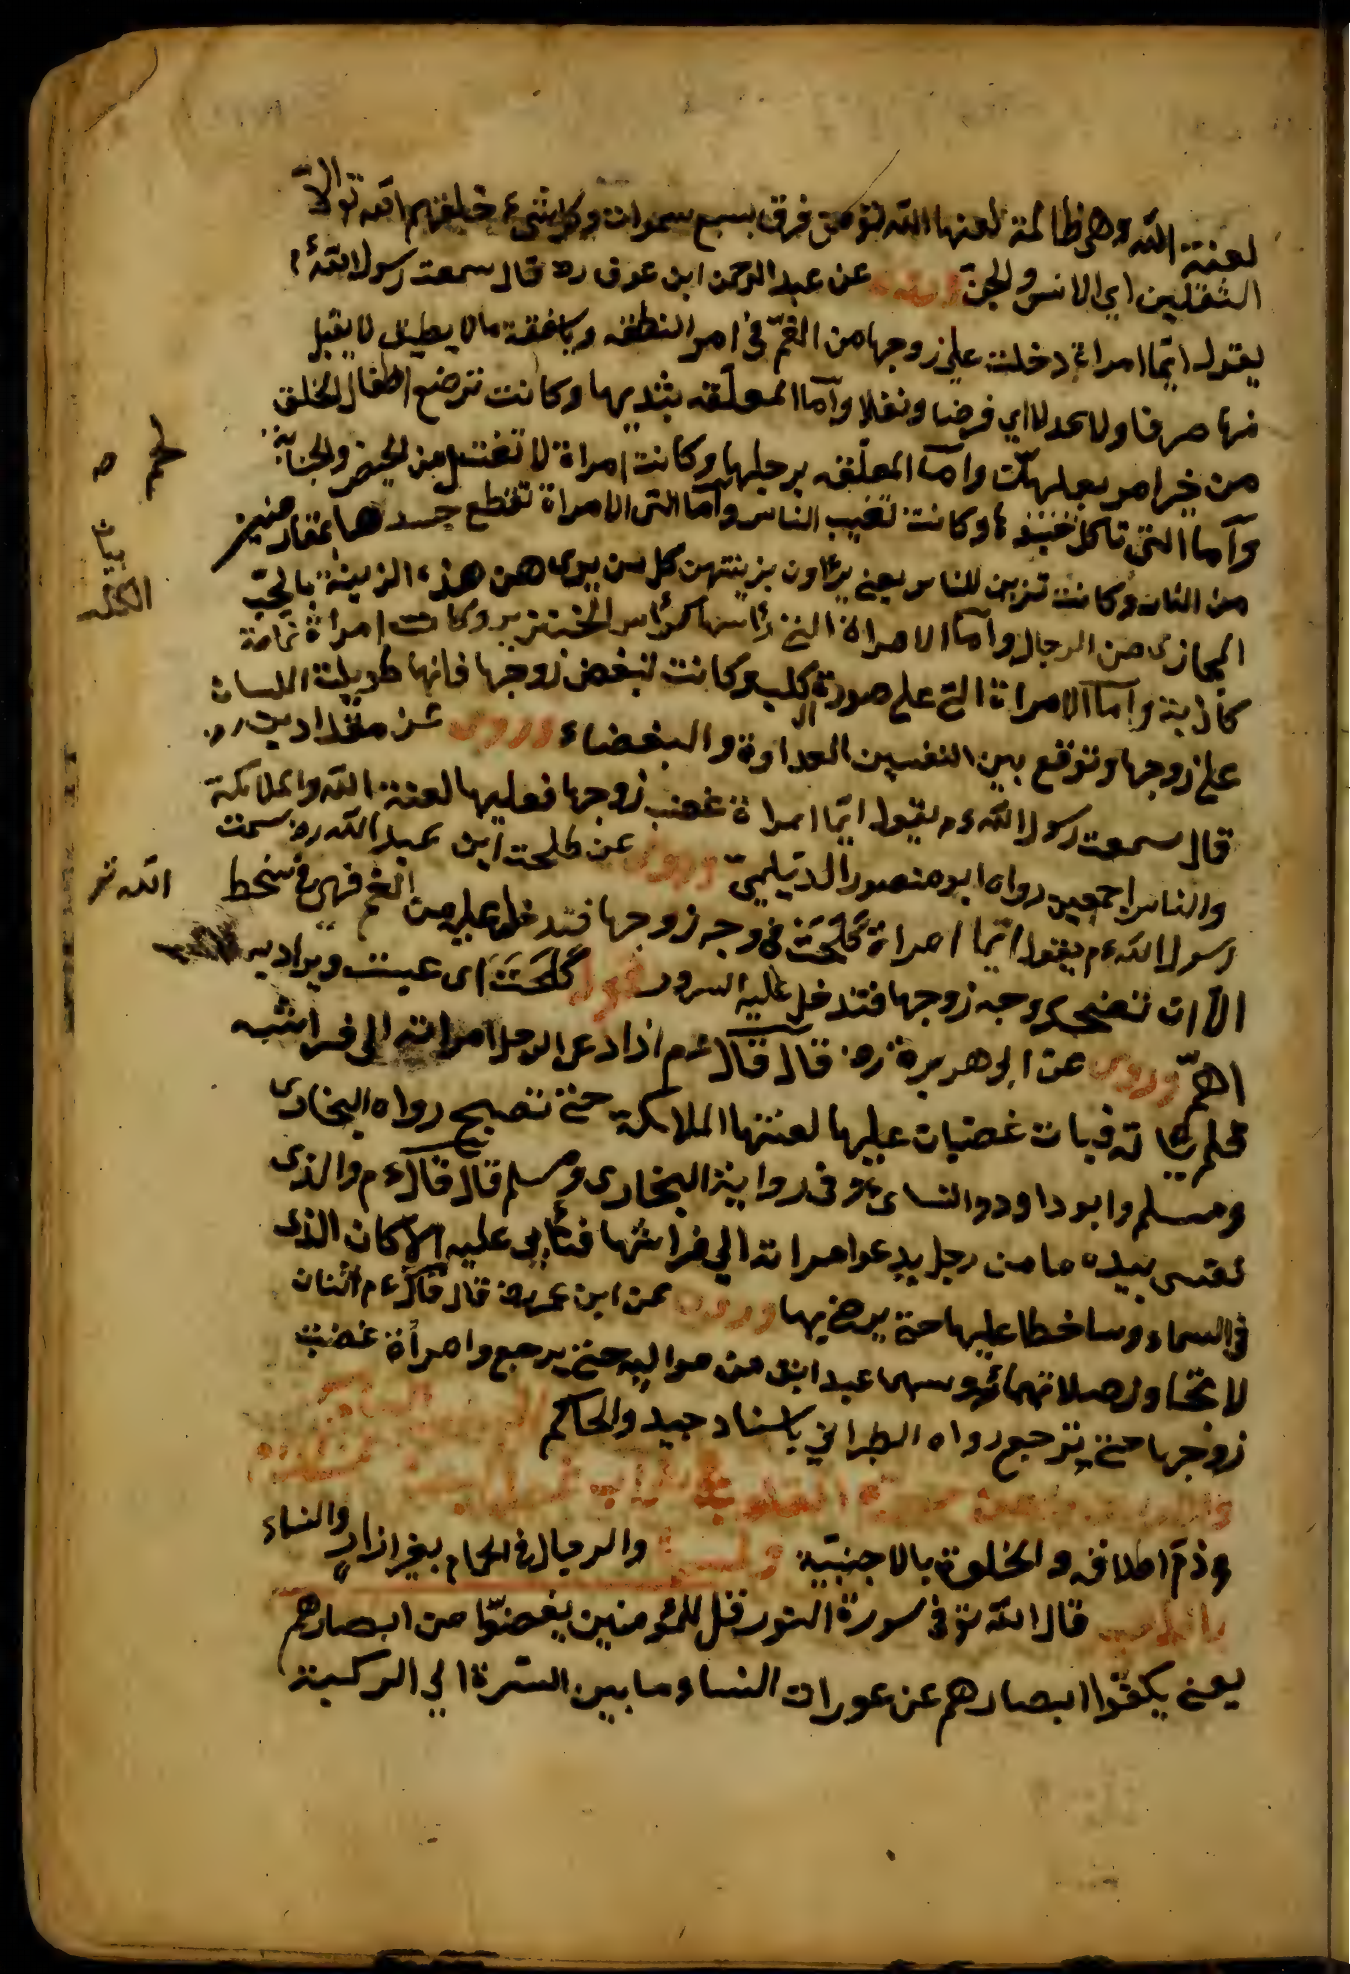 لعنته الله وهى ظالمة لعنها الله تو من فوق سبع سموات وكل شىء خلقهم الله تو الا
الثقلين اى الانس والجن وروى عن عبد الرحمن ابن عوف ره قال سمعت رسول الله ءم
يقول ايما امراة دخلت على زوجها من الغم فى امر النفقه وكلفته ما لا يطيق لا يقبل
منها صرفا ولا عدلا اى فرضا ونفلا واما المعلقه بثديها وكانت ترضع اطفال الخلق
من غير امر بعلهن واما المعلقه برجليها وكانت امراة لا تغتسل من الحيض والجنابة
واما التى تاكل وكانت تغيب الناس واما التى الامراة تقطع جسدها بمقاريض
من النار وكانت تزين للناس يعنى يراون بزينتهن كل من يرى هن هذه الزينة
المجازى من الرجال واما الامراة التى راسها كرأس الخنزير وكانت امراة نمامة
كاذبة واما الامراة التى على صورة الكلب وكانت تبغض زوجها فانها طويلة اللسان
على زوجها وتوقع بين النفسين العداوة والبغضاء وروى عن مقداد
قال سمعت رسول الله ءم يقول ايما امراة غضب زوجها فعليها لعنة الله والملائكة
والناس اجمعين رواه ابو منصور الديلمى وروى عن طلحت ابن عبد الله ره سمعت
رسول الله ءم يقول ايما امراة كلحت فى وجه زوجها فتدخل عليه من الغم فهى فى سخط الله تو
الا ان تضحك وجه زوجها فتدخل عليه السرور قوله كلحت اى عبست ويراد به
الهم وروى عن ابو هريرة ره قال قال ءم اذا دعى الرجل امراته الى فراشه
فلم تاته فبات غضبان عليها لعنتها الملائكة حتى تصبح رواه البخارى
ومسلم وابو داود والنساى وفى رواية البخارى ومسلم قال قال ءم والذى
نفسى بيده ما من رجل يدعو امراته الى فراشها فتأبى عليه الا كان الذى
فى السماء وساخطا عليها حتى يرضى بها وروى عن ابن عمر ره قال قال ءم اثنان
لا تجاوز صلاتهما رؤسهما عبد ابق من مواليه حتى يرجع وامرأة غضبت
زوجها حتى ترجع رواه الطبرانى باسناد جيد والحاكم
وذم اطلاقه والخلوة بالاجنبية والرجال فى الحمام بغير ازار والنساء
قال الله تو فى سورة النور قل للمؤمنين يغضوا من ابصارهم
يعنى يكفوا ابصارهم عن عورات النساء وما بين السرة الى الركبة
لحم
بيان
الكلب